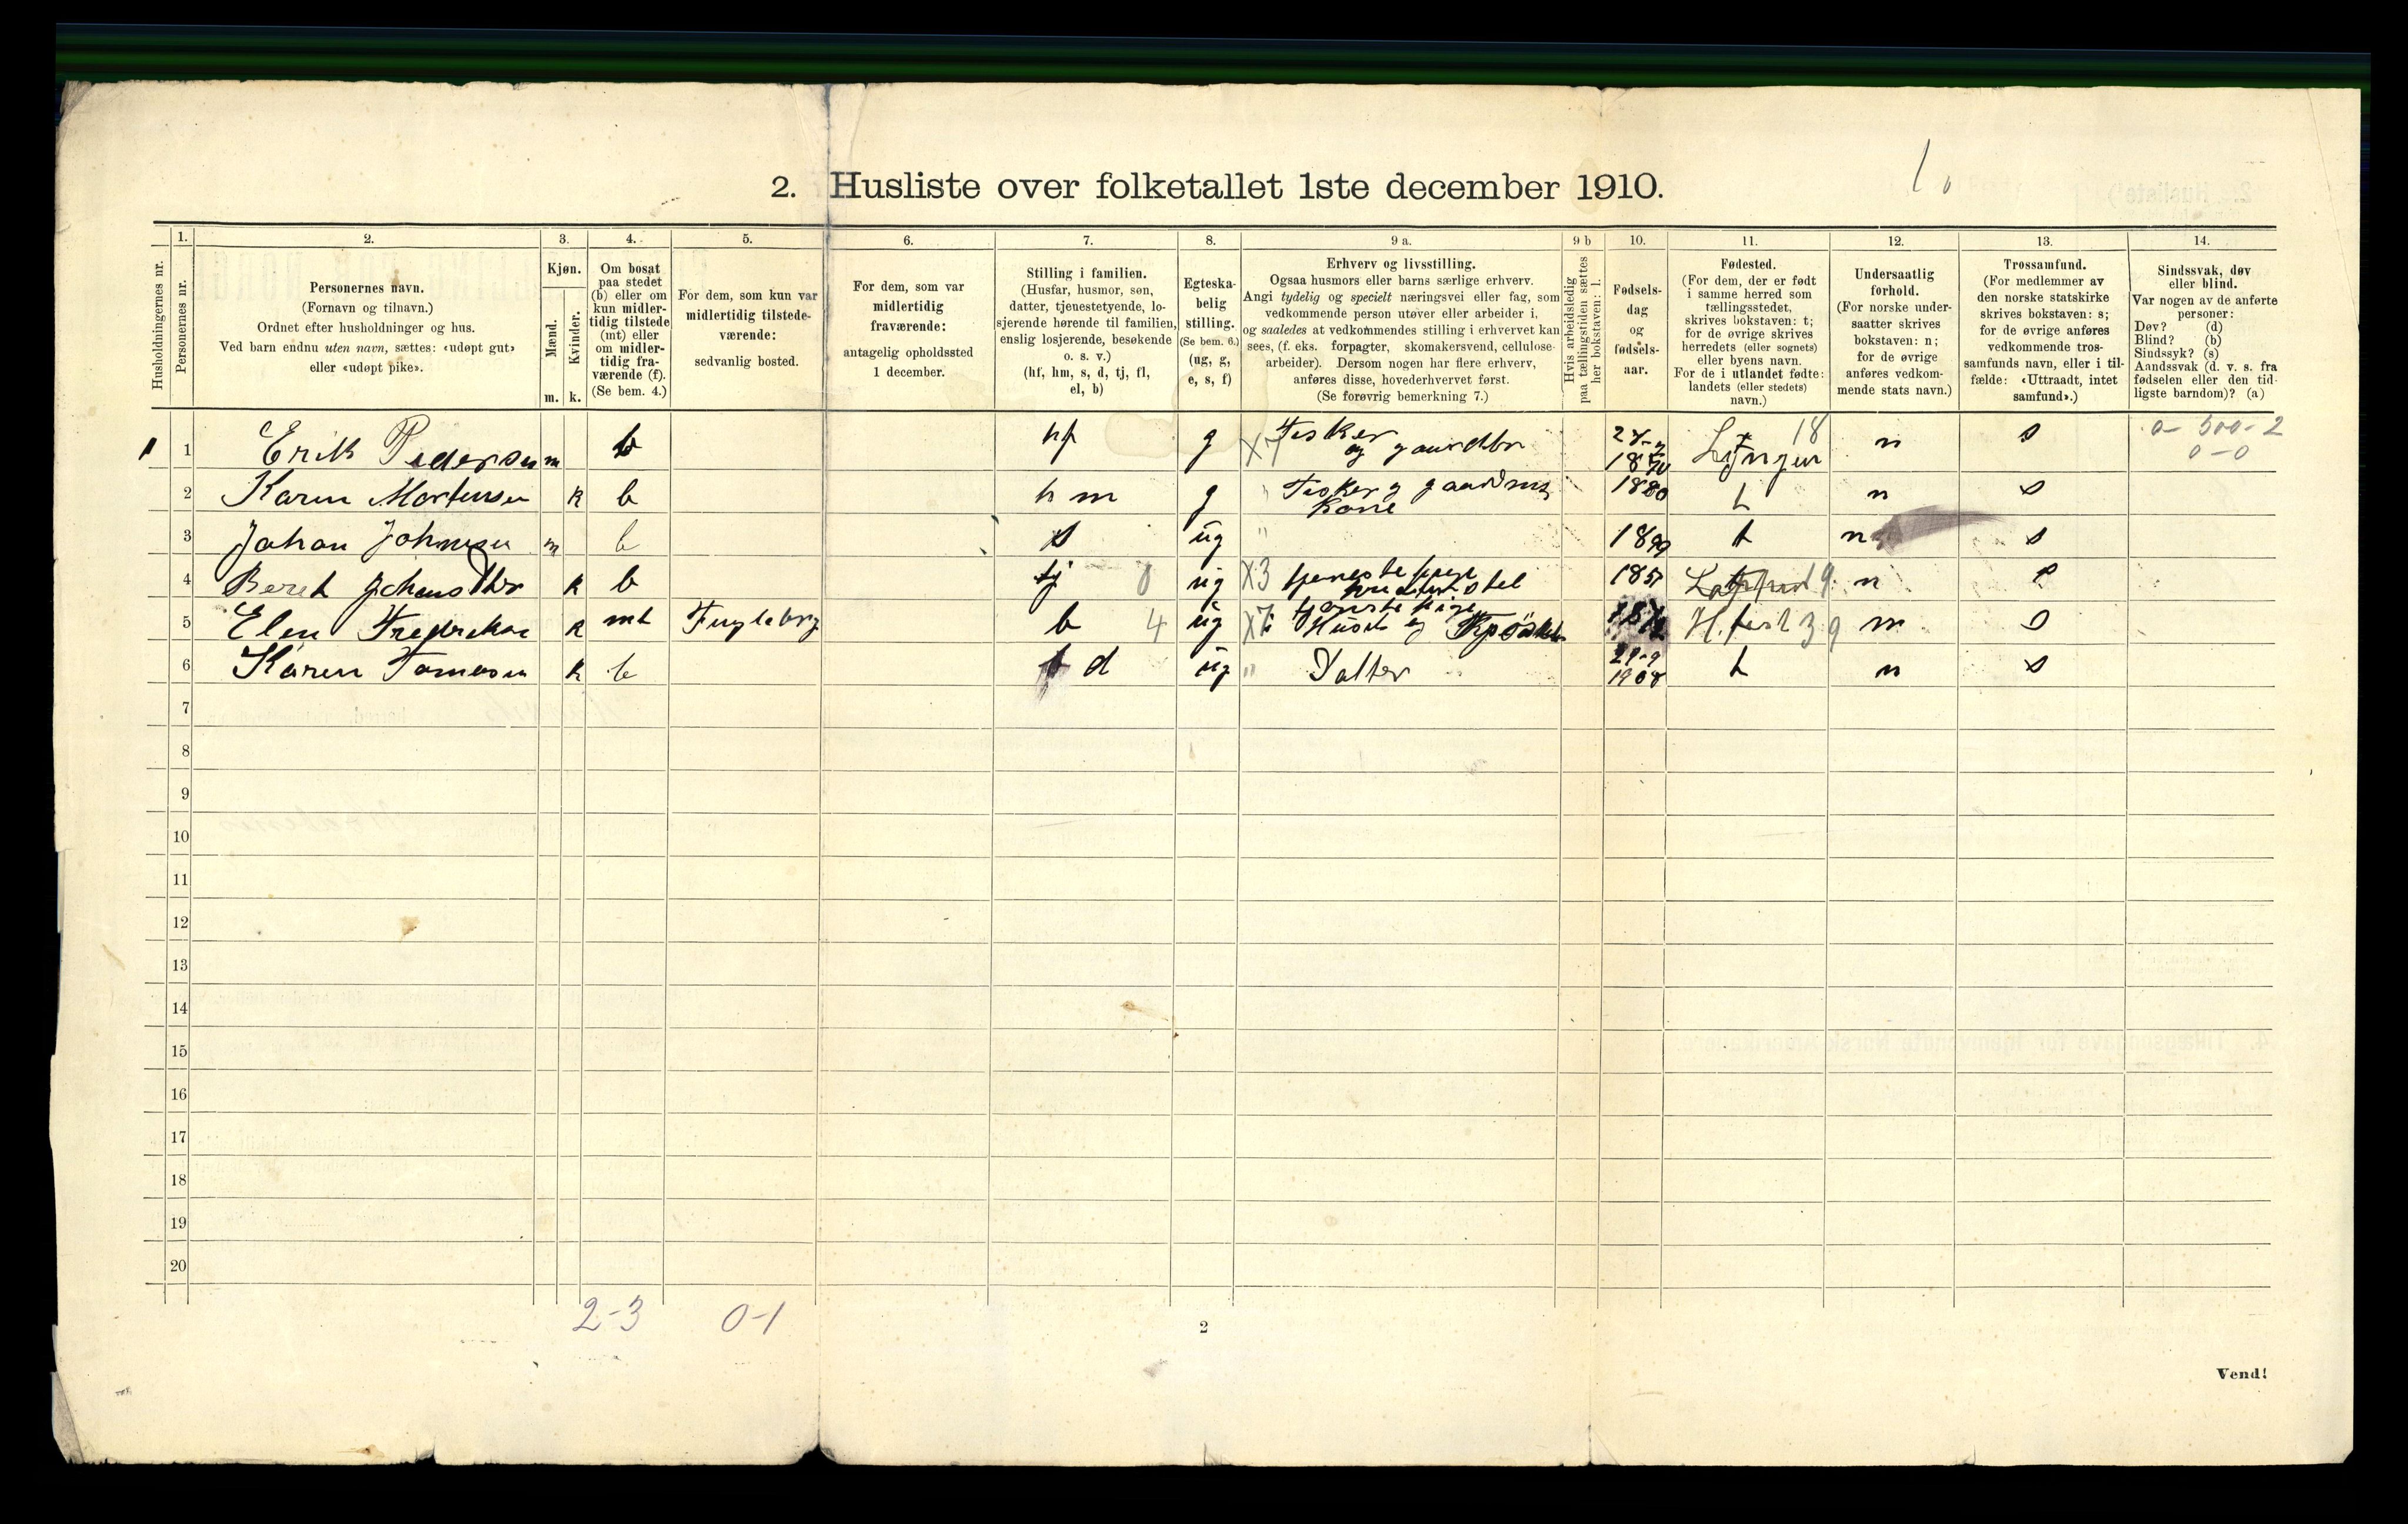 2. Husliste over folketallet 1ste december 1910.
Husholdningernes nr.
1.
Personernes nr.
2.
Personernes navn.
(Fornavn og tilnavn.)
Ordnet efter husholdninger og hus.
Ved barn endnu uten navn, sættes: «udøpt gut»
eller «udøpt pike».
3.
Kjøn.
Mænd.
Kvinder.
m.
k.
4.
Om bosat
paa stedet
(b) eller om
kun midler-
tidig tilstede
(mt) eller
om midler-
tidig fra-
værende (f).
(Se bem. 4.)
5.
For dem, som kun var
midlertidig tilstede-
værende:
sedvanlig bosted.
6.
For dem, som var
midlertidig
fraværende:
antagelig opholdssted
1 december.
7.
Stilling i familien.
(Husfar, husmor, søn,
datter, tjenestetyende, lo-
sjerende hørende til familien,
enslig losjerende, besøkende
o. s. v.)
(hf, hm, s, d, tj, fl,
el, b)
8.
Egteska-
belig
stilling.
(Se bem. 6.)
(ug, g,
e, s, f)
9 a.
Erhverv og livsstilling.
Ogsaa husmors eller barns særlige erhverv.
Angi tydelig og specielt næringsvei eller fag, som
vedkommende person utøver eller arbeider i,
og saaledes at vedkommendes stilling i erhvervet kan
sees, (f. eks. forpagter, skomakersvend, cellulose-
arbeider). Dersom nogen har flere erhverv,
anføres disse, hovederhvervet først.
(Se forøvrig bemerkning 7.)
9 b
Hvis arbeidsledig
paa tællingstiden sættes
her bokstaven: l.
10.
Fødsels-
dag
og
fødsels-
aar.
11.
Fødested.
(For dem, der er født
i samme herred som
tællingsstedet,
skrives bokstaven: t;
for de øvrige skrives
herredets (eller sognets)
eller byens navn.
For de i utlandet fødte:
landets (eller stedets)
navn.)
12.
Undersaatlig
forhold.
(For norske under-
saatter skrives
bokstaven: n;
for de øvrige
anføres vedkom-
mende stats navn.)
13.
Trossamfund.
(For medlemmer av
den norske statskirke
skrives bokstaven: s;
for de øvrige anføres
vedkommende tros-
samfunds navn, eller i til-
fælde: «Uttraadt, intet
samfund».)
14.
Sindssvak, døv
eller blind.
Var nogen av de anførte
personer:
Døv? (d)
Blind? (b)
Sindssyk? (s)
Aandssvak (d. v. s. fra
fødselen eller den tid-
ligste barndom)? (a)
1 1 Erik Pedersen m b hf g Fisker og 18 Lyngen n s 0-300-2
0-0
2 Karen Mortensen k b hm g Fisker Kone 1880 t n s
3 Johan Johnsen m b s ug " 1899 t n s
4 Beret k b tj 0 ug X3 1851 9 n s
5 Elen k mt Fugleberg b 4 ug H.fest 39 n s
6 Karen Tomasen k b d ug " Datter 29-9 1908 t n s
7
8
9
10
11
12
13
14
15
16
17
18
19
20
2-3 0-1
2
Vend!